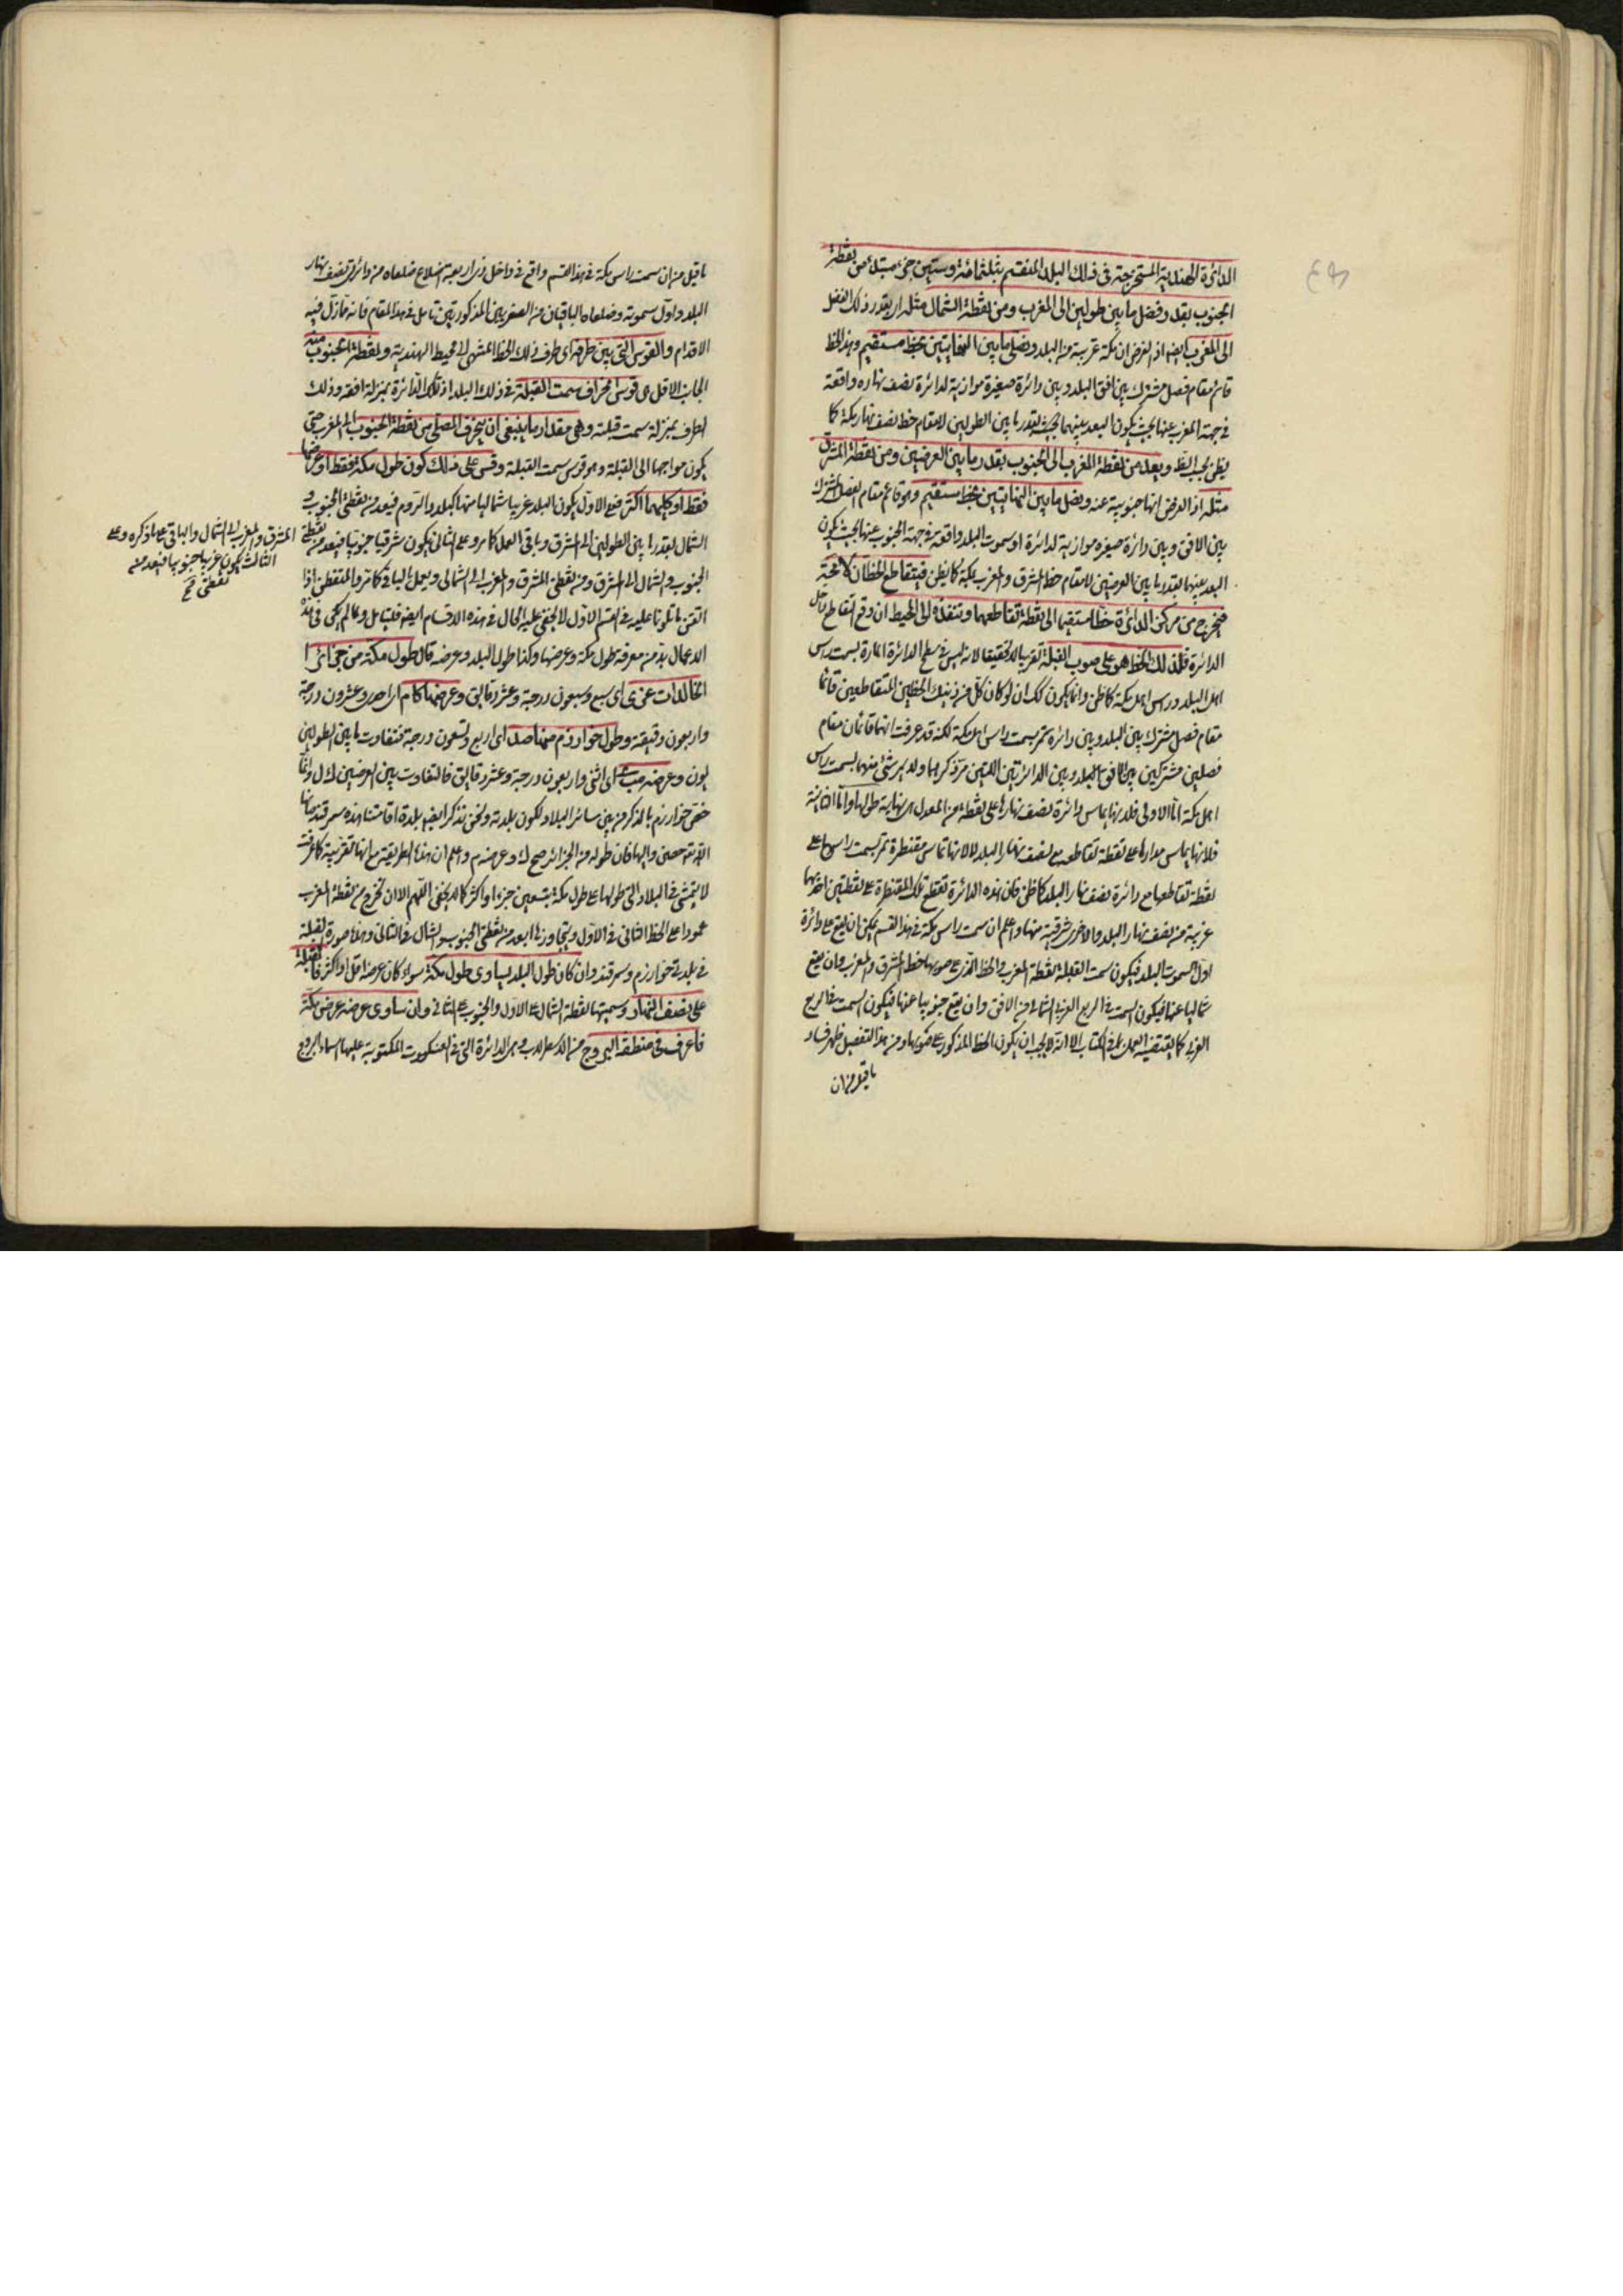 الدائرة الهندية المستخرجة فى ذلك البلد المنقسم بثلثمائة وستين جزء مبتدئ من نقطة
الجنوب بقدر فضل ما بين طولين الى المغرب ومن نقطة الشمال مثله اى بقدر ذلك الفضل
الى المغرب ايضا اذ الفرض ان مكة غربية من البلد ونصل ما بين النهايتين بخط مستقيم وهذا الخط
قائم مقام فصل مشترك بين افق البلد وبين دائرة صغيرة موازية لدائرة نصف نهاره واقعة
فى جهة المغرب عنها بحيث يكون البعد بينهما بقدر ما بين الطولين لا مقام خط نصف نهار مكة كما
يظن بحسب الظ ونعد من نقطة المغرب الى الجنوب بقدر ما بين العرضين ومن نقطة المشرق
مثله اذ الفرض انها جنوبية عنه ونصل ما بين النهايتين بخط مستقيم وهو قائم مقام الفصل المشترك
بين الافق وبين دائرة صغيرة موازية لدائرة اول سموت البلد واقعة فى جهة الجنوب عنها بحيث يكون
البعد بينهما بقدر ما بين العرضين لا مقام خط المشرق والمغرب بمكة كما يظن فيتقاطع الخطان لا محة
فنخرج من مركز الدائرة خطا مستقيما الى نقطة تقاطعهما وننفذه الى المحيط ان وقع التقاطع داخل
الدائرة فذلك الخط هو على صوب القبلة تقريبا لا تحقيقا لانه ليس فى سطح الدائرة المارة بسمت راس
اهل البلد وراس اهل مكة كما ظن وانما يكون كك ان لو كان كل من ذينك الخطين المتقاطعين قائما
مقام فصل مشترك بين البلد وبين دائرة تمر بسمت راس اهل مكة لكنه قد عرفت انهما قائمان مقام
فصلين مشتركين بين افق البلد وبين الدائرتين اللتين مر ذكرهما ولا يمر شئ منهما بسمت راس
اهل مكة اما الاولى فلانها يماس دائرة نصف نهارها على نقطة من المعدل هى نهاية طولها واما الثانية
فلانها يماس مدارها على نقطة تقاطعه مع نصف نهار البلد لا لانها تماس مقنطرة تمر بسمت راسها على
نقطة تقاطعها مع دائرة نصف نهار البلد كما ظن فان هذه الدائرة تقطع تلك المقنطرة على نقطتين احديهما
غربية من نصف نهار البلد والاخرى شرقية منها واعلم ان سمت راس مكة فى هذا القسم يمكن ان يقع على دائرة
اول السموت البلد فيكون سمت القبلة نقطة المغرب والخط الذى على صوبها خط المشرق والمغرب وان يقع
شماليا عنها فيكون السمت فى الربع الغربى الشمالى من الافق وان يقع جنوبيا عنها فيكون السمت فى الربع
الغربى كما يقتضيه العمل فى الكتاب الا انه لا يجب ان يكون الخط المذكور على صوبها ومن هذا التفصيل ظهر فساد
ما قيل من ان
ما قيل من ان سمت راس مكة فى هذا القسم واقع فى داخل ذى اربعة اضلاع ضلعاه من دائرتى نصف نهار
البلد واول سموته وضلعاه الباقيان من الصغريين المذكورتين تامل فى هذا المقام فانه مما زل فيه
الاقدام والقوس التى بين طرفه اى طرف ذلك الخط المنتهى الى محيط الهندية ونقطة الجنوب منه
الجانب الاقل هى قوس انحراف سمت القبلة فى ذلك البلد اذ تلك الدائرة بمنزلة افقه وذلك
الطرف بمنزلة سمت قبلته وهى مقدار ما ينبغى ان ينحرف المصلى من نقطة الجنوب الى المغرب حتى
يكون مواجها الى القبلة وهو قوس سمت القبلة وقس على ذلك كون طول مكة فقط او عرضها
فقط او كليهما اكثر فعلى الاول يكون البلد غربيا شماليا منها كبلد الروم فيعد من نقطتى الجنوب و
الشمال بقدر ما بين الطولين الى المشرق وباقى العمل كما مر وعلى الثانى يكون شرقيا جنوبيا فيعد من نقطتى
الجنوب والشمال الى المشرق ومن نقطتى المشرق والمغرب الى الشمال ويعمل الباقى كما مر والمتفطن اذا
اتقن ما تلونا عليه فى القسم الاول لا يخفى عليه الحال فى هذه الاقسام ايضا فليتامل ولما لم يكن فى هذه
الاعمال بد من معرفة طول مكة وعرضها وكذا طول البلد وعرضه قال طول مكة من جزائر ا
الخالدات عزى اى سبع وسبعون درجة وعشر دقايق وعرضها كام اى احدى وعشرون درجة
واربعون دقيقة وطول خوارزم منها صد اى اربع وتسعون درجة فتفاوت ما بين الطولين
يون وعرضه مب اى اثنى واربعون درجة وعشر دقايق فالتفاوت بين العرضين ك ل وانما
خص خوارزم بالذكر من بين سائر البلاد لكون بلدته ونحن نذكر ايضا بلدة اقامتنا هذه سمرقند صانها
الله تعالى عن الافات واهلها فان طوله من الجزائر صح ك وعرضه م واعلم ان هذا الطريقة مع انها تقريبية كما عرفت
لا يتمشى فى البلاد التى طولها على طول مكة بتسعين جزءا واكثر كما لا يخفى اللهم الا ان نخرج من نقطة المغرب
عمودا على الخط الثانى فى الاول ويتجاوز فى العد من نقطتى الجنوب والشمال فى الثانى وهذا صورة القبلة
فى بلدتى خوارزم وسمرقند وان كان طول البلد يساوى طول مكة سواء كان عرضه اقل او اكثر فالقبلة
على نصف النهار وسمتها نقطة الشمال على الاول والجنوب على الثانى وان ساوى عرضه عرض مكة
فاعرف فى منطقة البروج من الاسطرلاب وهى الدائرة التى فى العنكبوت المكتوبة عليها اسماء البروج
المشرق والمغرب الى الشمال والباقى على ما ذكره وعلى
الثالث يكون غربيا جنوبيا فيعد من
نقطتى